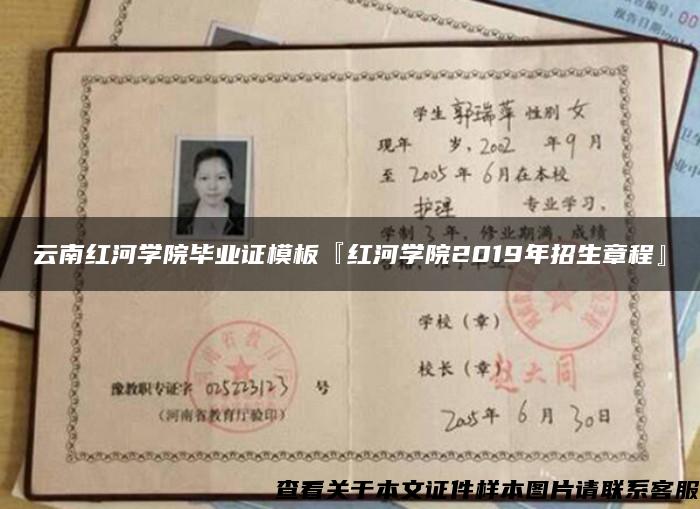 学生 郭瑞萍 性别 女
现年 岁,2002 年9月
至 2005年 6月在本校
护理 专业学习,
学制 3 年,修业期满,成绩
云南红河学院毕业证模板『红河学院2019年招生章程』
学校(章)
校长(章) 赵大同
河南省教育厅
豫教职专证字 025223123 号
(河南省教育厅验印)
2005年 6月 30日
查看关于本文证件样本图片请联系客服